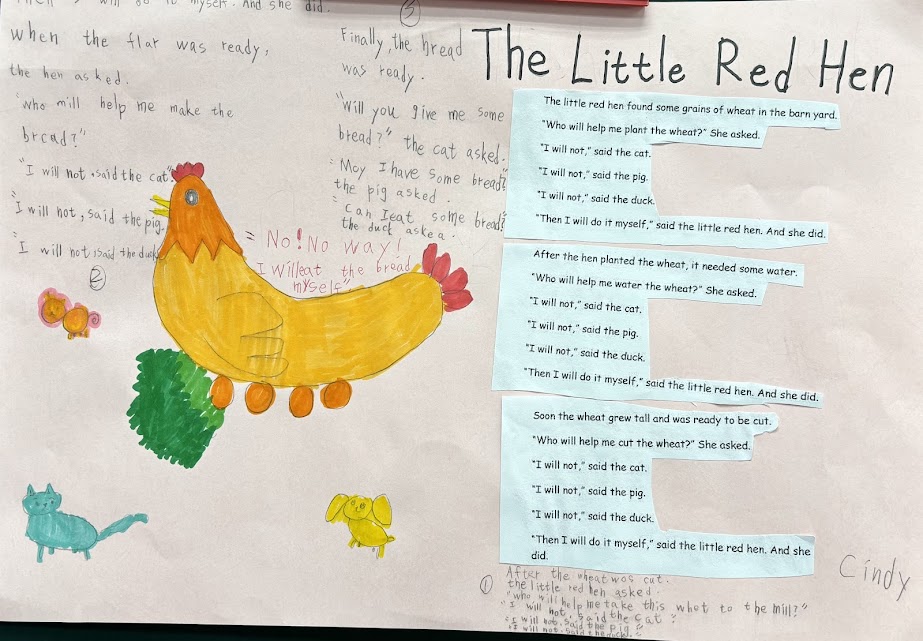 The Little Red Hen
The little red hen found some grains of wheat in the barn yard.
"Who will help me plant the wheat?" She asked.
"I will not," said the cat.
"I will not," said the pig.
"I will not," said the duck.
"Then I will do it myself," said the little red hen. And she did.
After the hen planted the wheat, it needed some water.
"Who will help me water the wheat?" She asked.
"I will not," said the cat.
"I will not," said the pig.
"I will not," said the duck.
"Then I will do it myself," said the little red hen. And she did.
Soon the wheat grew tall and was ready to be cut.
"Who will help me cut the wheat?" She asked.
"I will not," said the cat.
"I will not," said the pig.
"I will not," said the duck.
"Then I will do it myself," said the little red hen. And she
did.
① After the wheat was cut.
the little red hen asked.
"who will help me take this whet to the mill?"
"I will not, said the cat."
"I will not, said the pig."
"I will not, said the duck."
myself. And she did.
when the flar was ready,
the hen asked.
"who mill help me make the
bread?"
"I will not, said the cat."
"I will not, said the pig.
"I will not, said the duck
②
③
Finally, the bread
was ready.
"Will you give me some
bread?" the cat asked.
"May I have some bread?"
the pig asked.
"Can I eat some bread?
the duck asked.
"No! No way!
I will eat the bread
myself"
Cindy